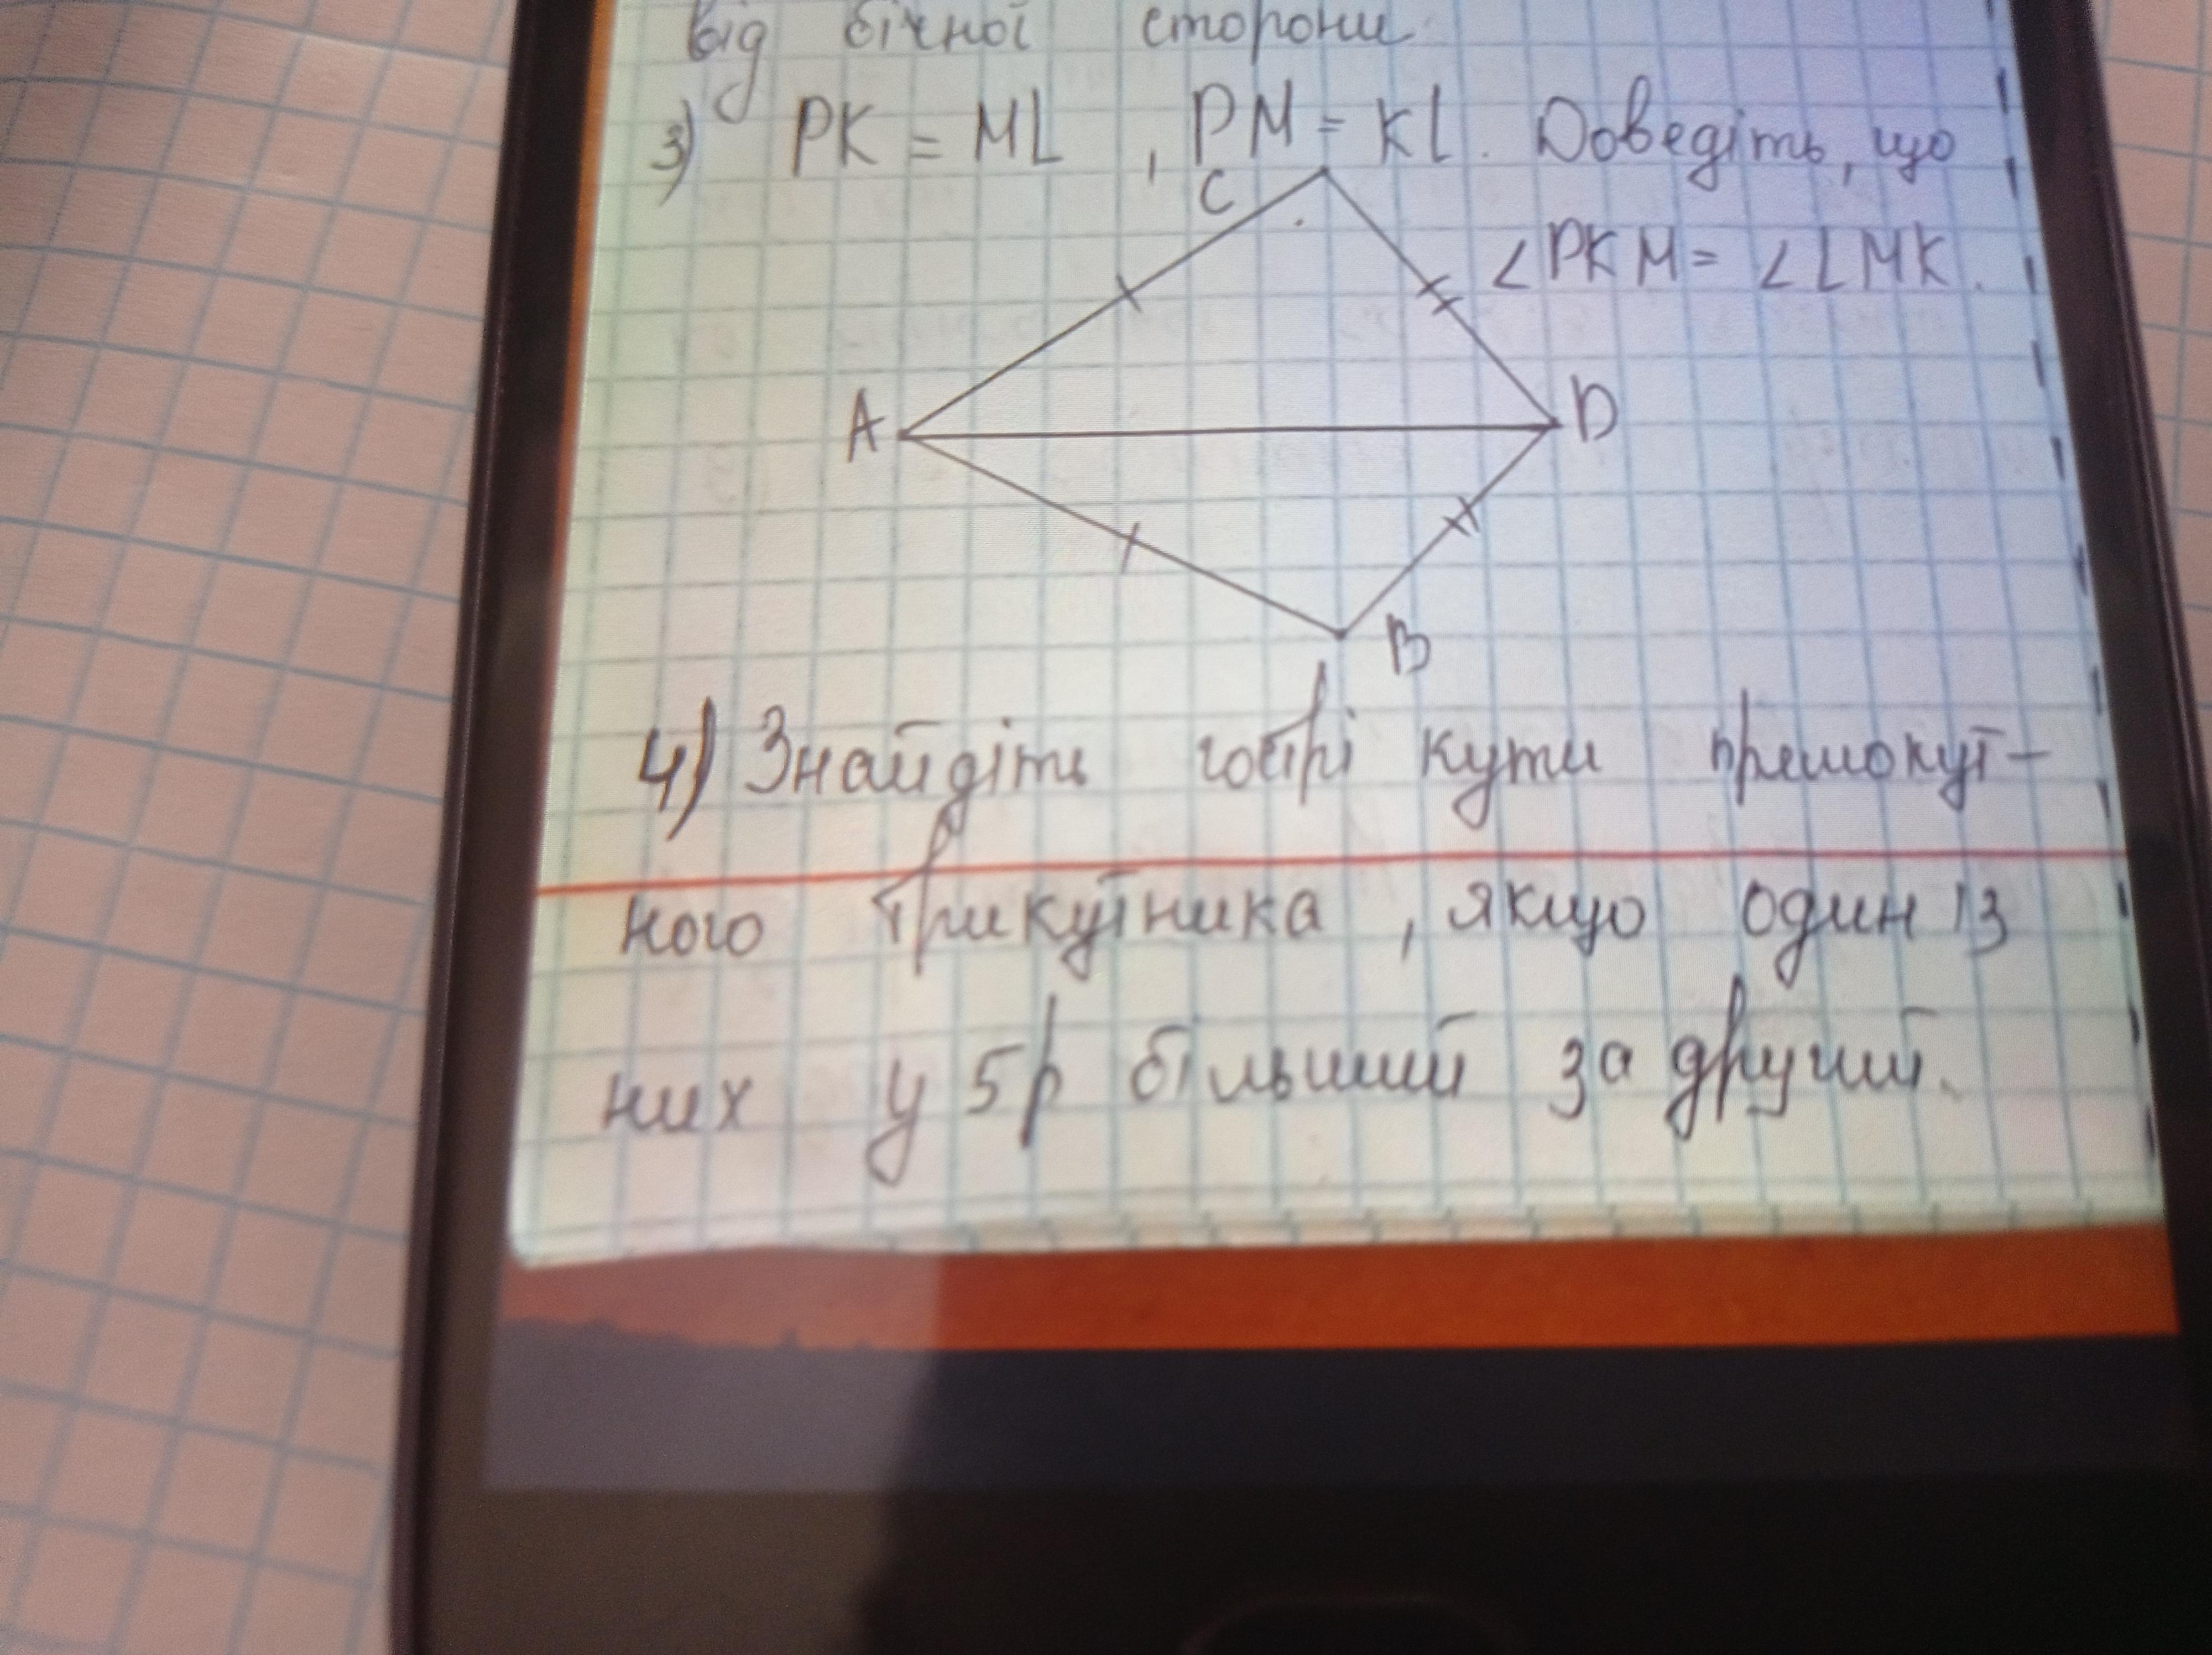 від бічної сторони
3) PK = ML, PM = KL. Доведіть, що
∠PKM = ∠LMK.
C
A
D
B
4) Знайдіть гострі кути прямокут-
ного трикутника, якщо один із
них у 5р більший за другий.